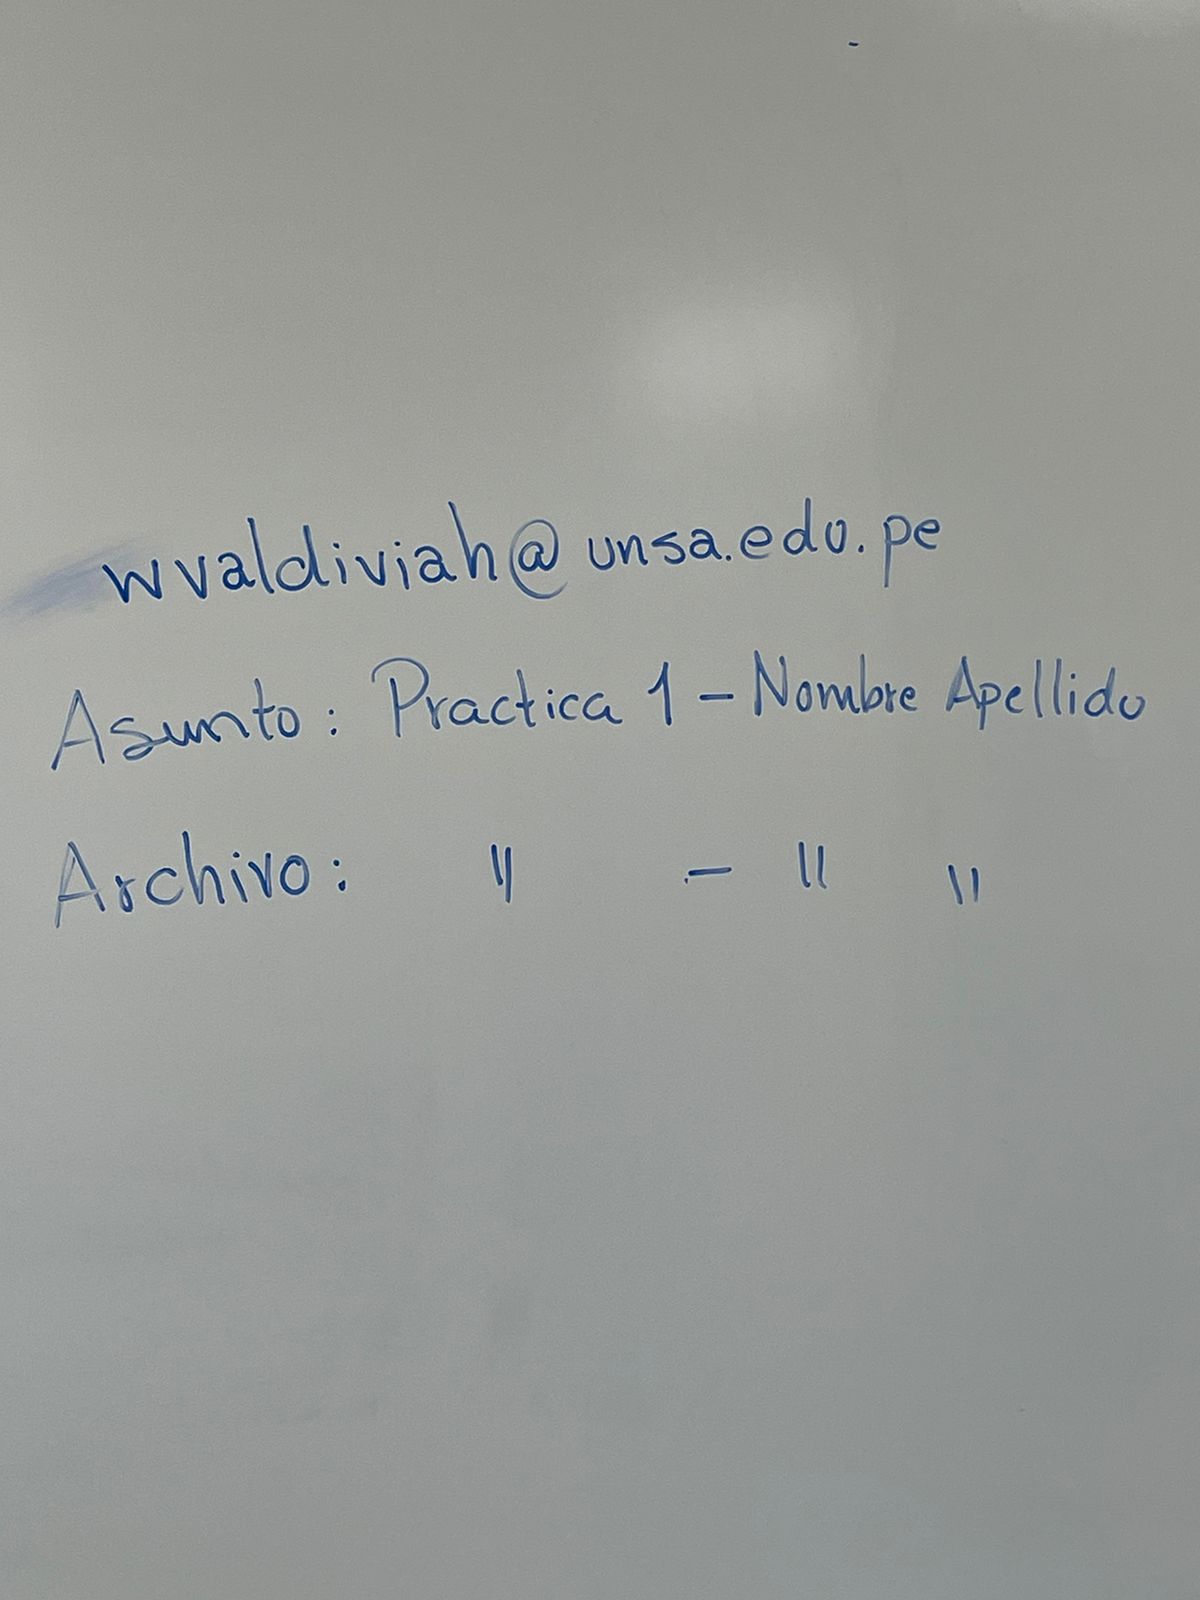 wvaldiviah@unsa.edu.pe
Asunto: Practica 1 - Nombre Apellido
Archivo: " - " "